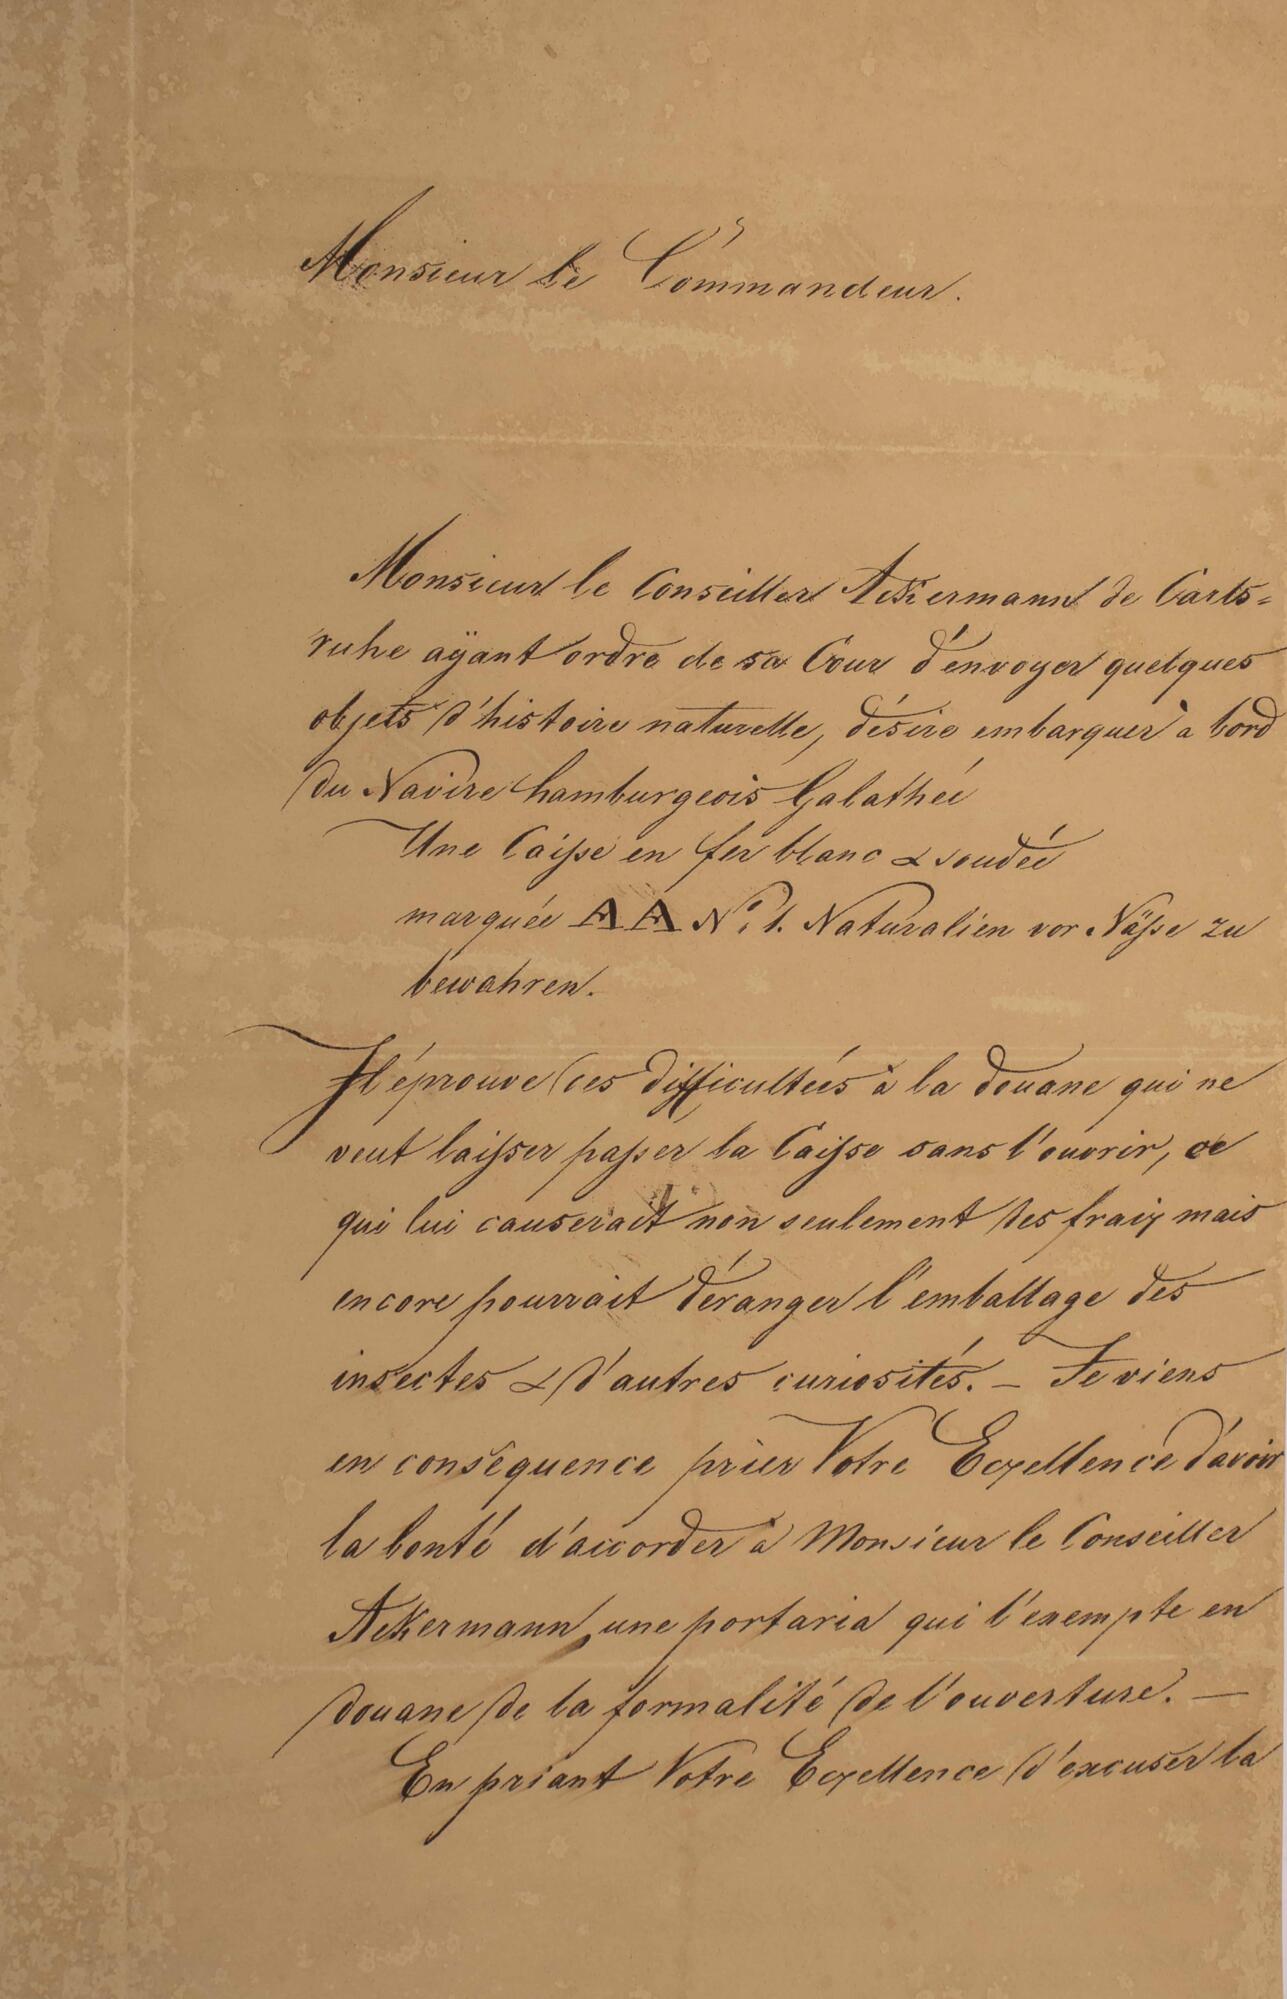 Monsieur le Commandeur.
Monsieur le Conseiller Ackermann de Carls=
ruhe aÿant ordre de sa Cour d'envoyer quelques
objets d'histoire naturelle, désire embarquer à bord
du Navire hamburgeois Galathée
Une Caisse en fer blanc & soudée
marquée AA Nº 1. Naturalien vor Näße zu
bewahren.
Il éprouve des difficultées à la douane qui ne
veut laisser passer la Caisse sans l'ouvrir, ce
qui lui causerait non seulement des fraix mais
encore pourrait déranger l'emballage des
insectes & d'autres curiosités. _ Je viens
en conséquence prier Votre Excellence d'avoir
la bonté d'accorder à Monsieur le Conseiller
Ackermann une portaria qui l'exempte en
douane de la formalité de l'ouverture. —
En priant Votre Excellence d'excuser la